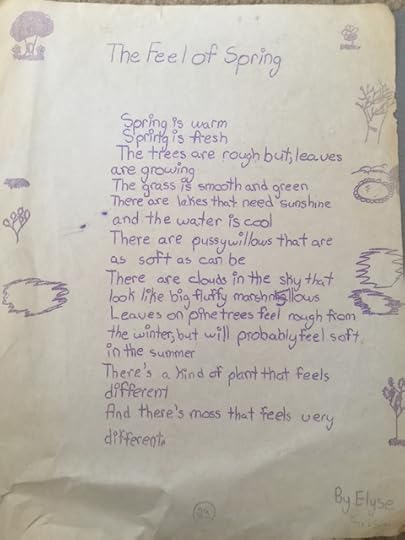 The Feel of Spring
Spring is warm
Spring is fresh
The trees are rough but, leaves
are growing
The grass is smooth and green
There are lakes that need sunshine
and the water is cool
There are pussywillows that are
as soft as can be
There are clouds in the sky that
look like big fluffy marshmallows
Leaves on pine trees feel rough from
the winter, but will probably feel soft
in the summer
There's a kind of plant that feels
different
And there's moss that feels very
different.
By Elyse